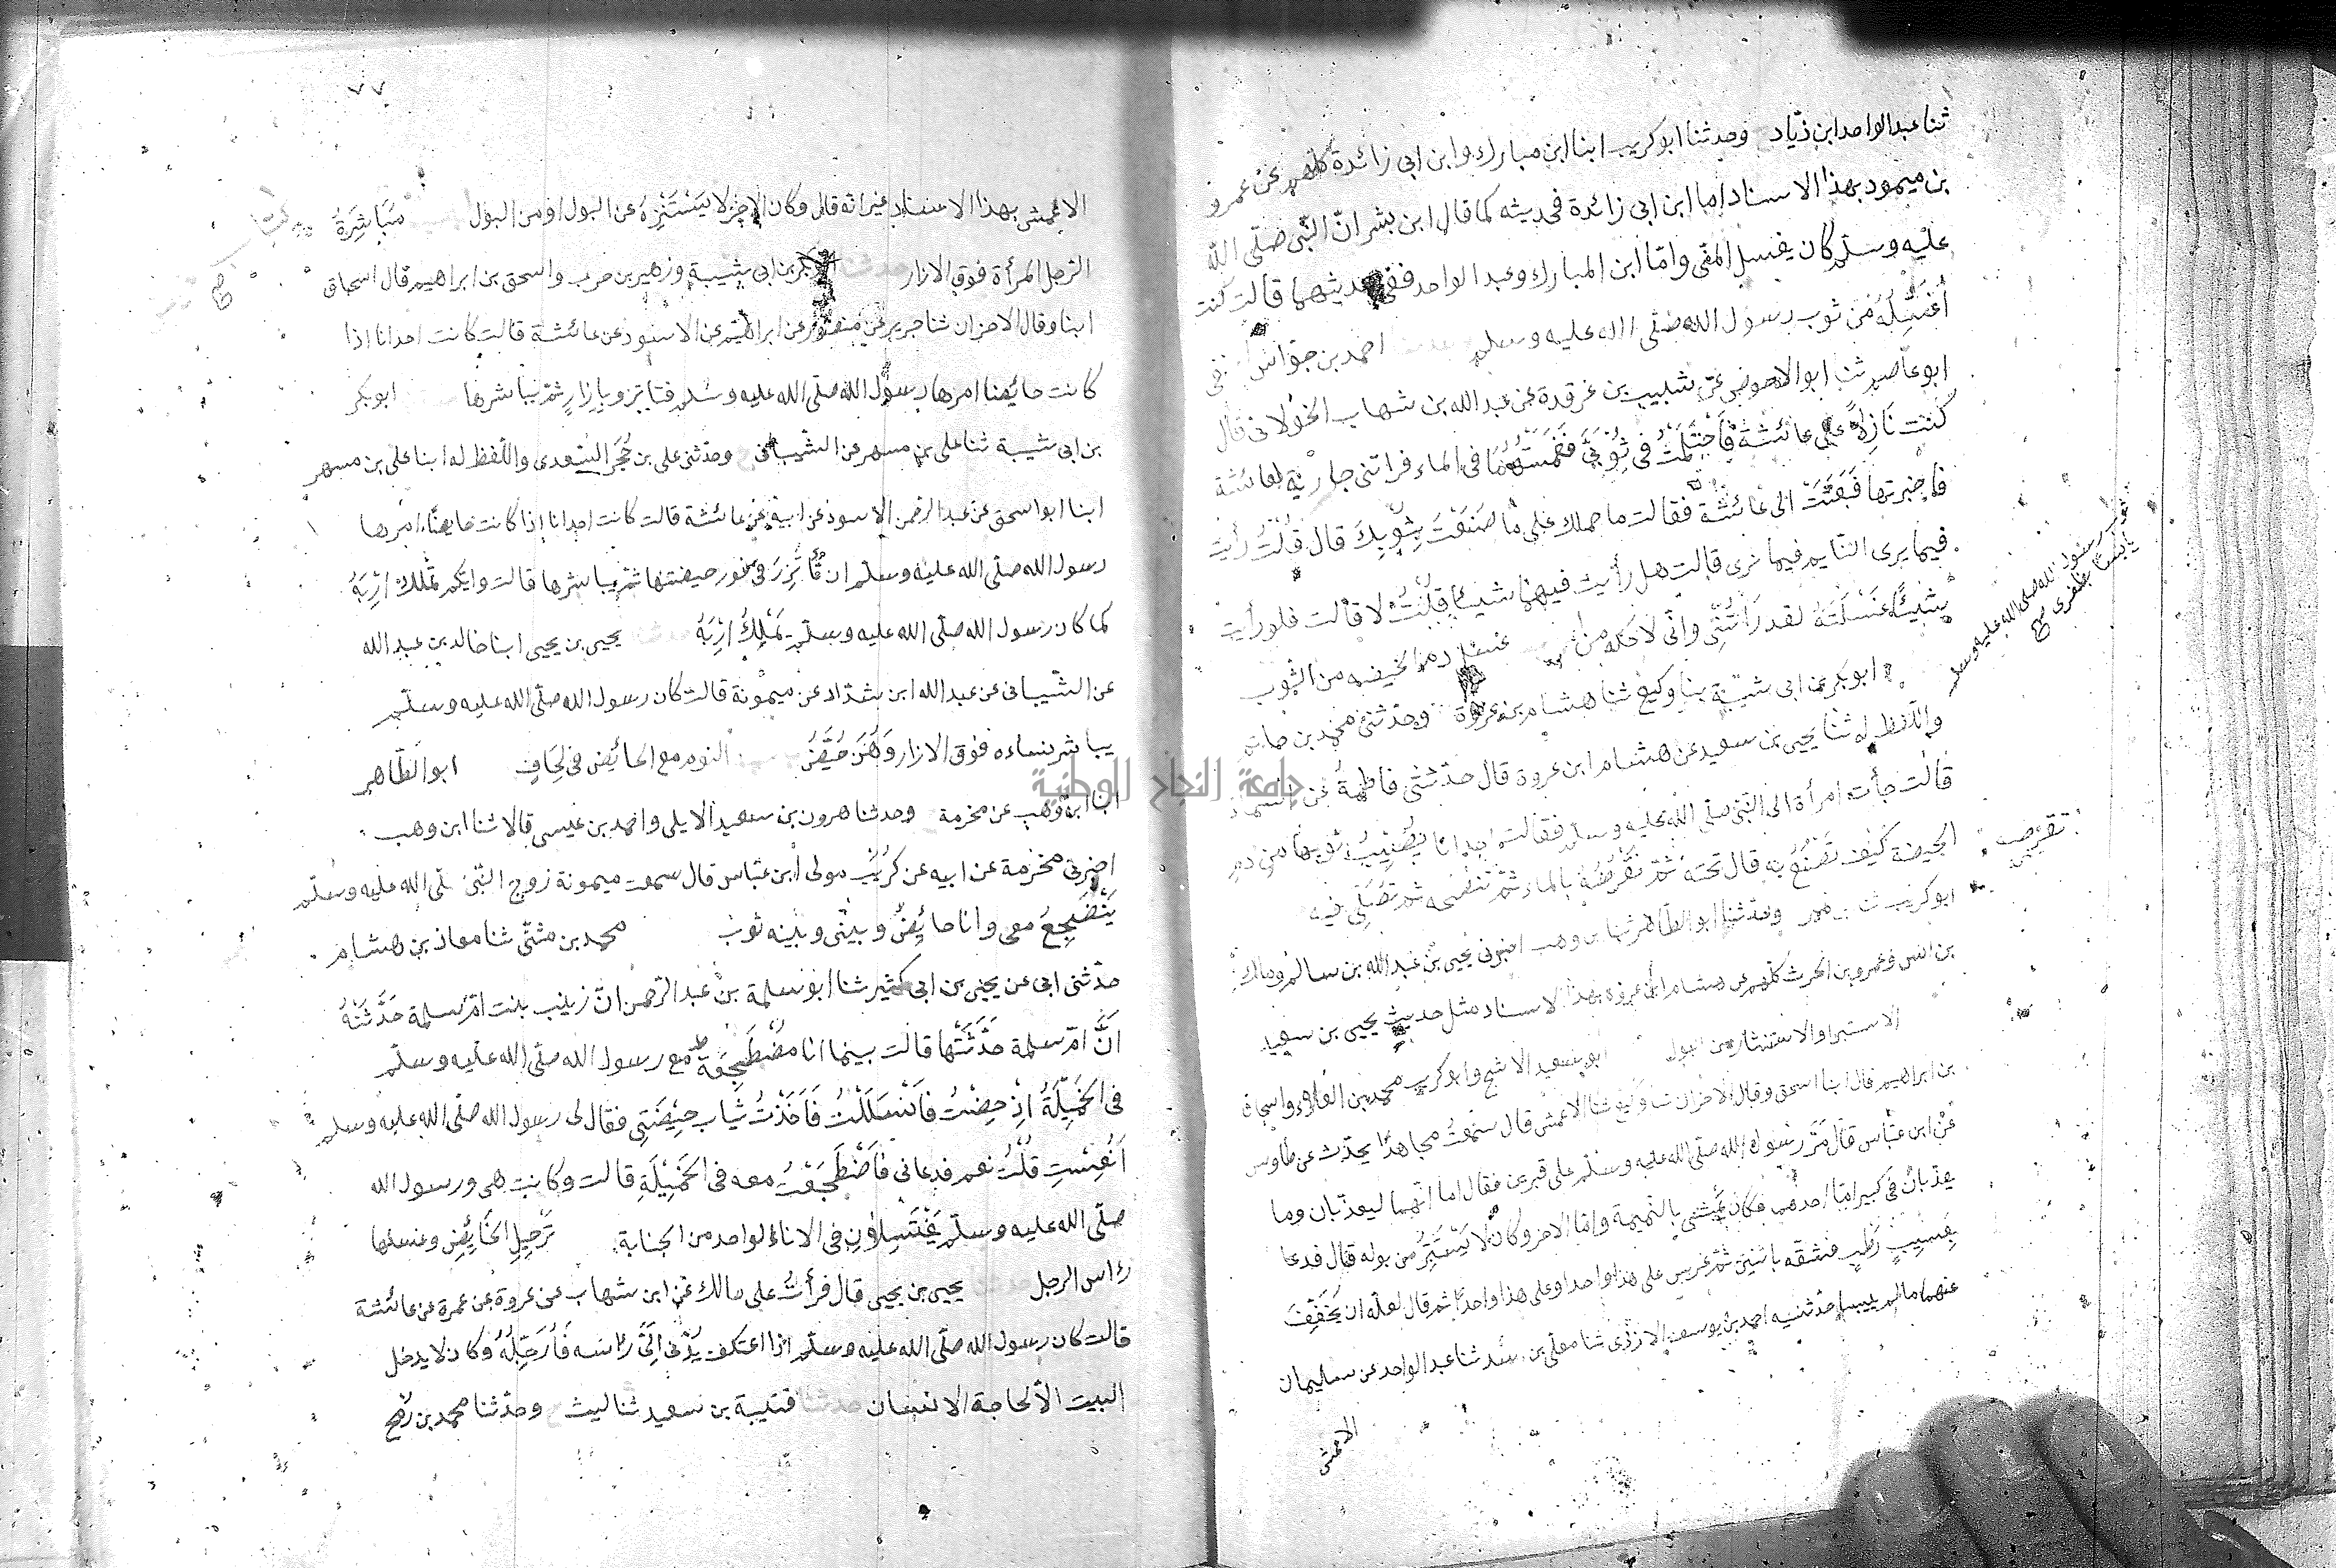 ثنا عبد الواحد ابن زياد وحدثنا ابو كريب ابنا ابن مبارك وابن ابى زائدة كلهم عن عمرو
بن ميمون بهذا الاسناد اما ابن ابى زائدة فحديثه كما قال ابن بشر انّ النّبى صلّى الله
عليه وسلّم كان يغسل المنى وامّا ابن المبارك وعبد الواحد ففى حديثهما قالت كنت
أغسله من ثوب رسول الله صلّى الله عليه وسلم احمد بن جوّاس
ابو عاصم ثنا ابو الاحوص عن شبيب بن غرقدة عن عبد الله بن شهاب الخولانى قال
كنت نازلاً على عائشة فاحتلمت فى ثوبىّ فغمستهما فى الماء فراتنى جارية لعائشة
فاخبرتها فبعثت الى عائشة فقالت ما حملك على ما صنعت بثوبيك قال قلت رأيت
فيما يرى النايم فيما قالت هل رأيت فيهما شيئا قلت لا قالت فلو رأيت
شيئاً غسلته لقد رأتنى وانّى لاحكه من غسل دم الحيضه من الثوب
ثوب رسول الله صلى الله عليه وسلم
يابسًا بظفرى صح
ابو بكر بن ابى شيبة ثنا وكيع ثنا هشام بن عروة وحدّثنى محمد بن حاتم
واللّفظ له ثنا يحيى بن سعيد عن هشام ابن عروة قال حدّثتنى فاطمة عن اسماء
قالت جأت امرأة الى النّبى صلّى الله عليه وسلّم فقالت احدانا يصيب ثوبها من دم
الحيضة كيف تصنع به قال تحته ثمّ تقرصه بالماء ثمّ تنضحه ثم تصلّى فيه
تقرصه
ابو كريب ثنا ابن نمير وحدّثنا ابو الطّاهر ثنا ابن وهب اخبرنى يحيى بن عبد الله بن سالم ومالك
بن انس وعمرو بن الحرث كلّهم عن هشام ابن عروة بهذا الاسناد مثل حديث يحيى بن سعيد
الاستبرا والاستنثار من البول ابو سعيد الاشج وابو كريب محمد بن العلاء واسحاق
بن ابراهيم قال ابنا اسحق وقال الاخران ثنا وكيع ثنا الاعمش قال سمعت مجاهدًا يحدّث عن طاوس
عن ابن عبّاس قال مرّ رسول الله صلّى الله عليه وسلّم على قبرين فقال اما انّهما ليعذّبان وما
يعذّبان فى كبير امّا احدهما فكان يمشى بالنّميمة وامّا الاخر وكان لا يستتر من بوله قال فدعا
بعسيب رطب فشقّه باثنين ثمّ غرس على هذا واحدا وعلى هذا واحدًا ثمّ قال لعلّه ان يخفّف
عنهما ما لم ييبسا حدّثنيه احمد بن يوسف الازدى ثنا معلّى بن اسد ثنا عبد الواحد عن سليمان
الاعمش
٧٧
الاعمش بهذا الاسناد غير انه قال وكان الاخر لا يستنزه عن البول او من البول مباشرة
الرّجل المرأة فوق الازار حدثنا ابو بكر بن ابى شيبة وزهير بن حرب واسحق بن ابراهيم قال اسحاق
صح
ابنا وقال الاخران ثنا جرير عن منصور عن ابراهيم عن الاسود عن عائشة قالت كانت احدانا اذا
كانت حائضا امرها رسول الله صلّى الله عليه وسلّم فتاتزر بازارٍ ثمّ يباشرها ابو بكر
بن ابى شيبة ثنا على بن مسهر عن الشّيبانى وحدّثنى على بن حُجر السّعدى واللّفظ له ابنا على بن مسهر
ابنا ابو اسحق عن عبد الرّحمن الاسود عن ابيه عن عائشة قالت كانت احدانا اذا كانت حايضًا امرها
رسول الله صلّى الله عليه وسلّم ان تأتزر فى فور حيضتها ثمّ يباشرها قالت وايّكم يملك اربه
كما كان رسول الله صلّى الله عليه وسلّم يملك اربه حدثنا يحيى بن يحيى ابنا خالد بن عبد الله
عن الشّيبانى عن عبد الله ابن شدّاد عن ميمونة قالت كان رسول الله صلّى الله عليه وسلّم
يباشر نساءه فوق الازار وهنّ حُيّض النوم مع الحائض فى لحافٍ ابو الطّاهر
ابنا ابن وهب عن مخرمة وحدثنا هرون بن سعيد الايلى واحمد بن عيسى قالا ثنا ابن وهب
اخبرنى مخرمة عن ابيه عن كريب مولى ابن عبّاس قال سمعت ميمونة زوج النّبى صلّى الله عليه وسلّم
ينضجع معى وانا حائض وبينى وبينه ثوب محمد بن مثنّى ثنا معاذ بن هشام
حدّثنى ابى عن يحيى بن ابى كثير ثنا ابو سلمة بن عبد الرّحمن انّ زينب بنت امّ سلمة حدّثته
انّ امّ سلمة حدّثتها قالت بينما انا مضطجعة مع رسول الله صلّى الله عليه وسلّم
فى الخميلة اذ حضت فانسللت فاخذت ثياب حيضتى فقال لى رسول الله صلّى الله عليه وسلم
انفست قلت نعم فدعانى فاضطجعت معه فى الخميلة قالت وكانت هى ورسول الله
صلّى الله عليه وسلّم يغتسلون فى الاناء الواحد من الجنابة ترجيل الحايض وغسلها
رأس الرجل حدثنا يحيى بن يحيى قال قرأت على مالك عن ابن شهاب عن عروة عن عمرة عن عائشة
قالت كان رسول الله صلّى الله عليه وسلّم اذا اعتكف يدنى الىّ رأسه فارجّله وكان لا يدخل
البيت الاّ لحاجة الانسان حدثنا قتيبة بن سعيد ثنا ليث وحدّثنا محمد بن رمح
جامعة النجاح الوطنية